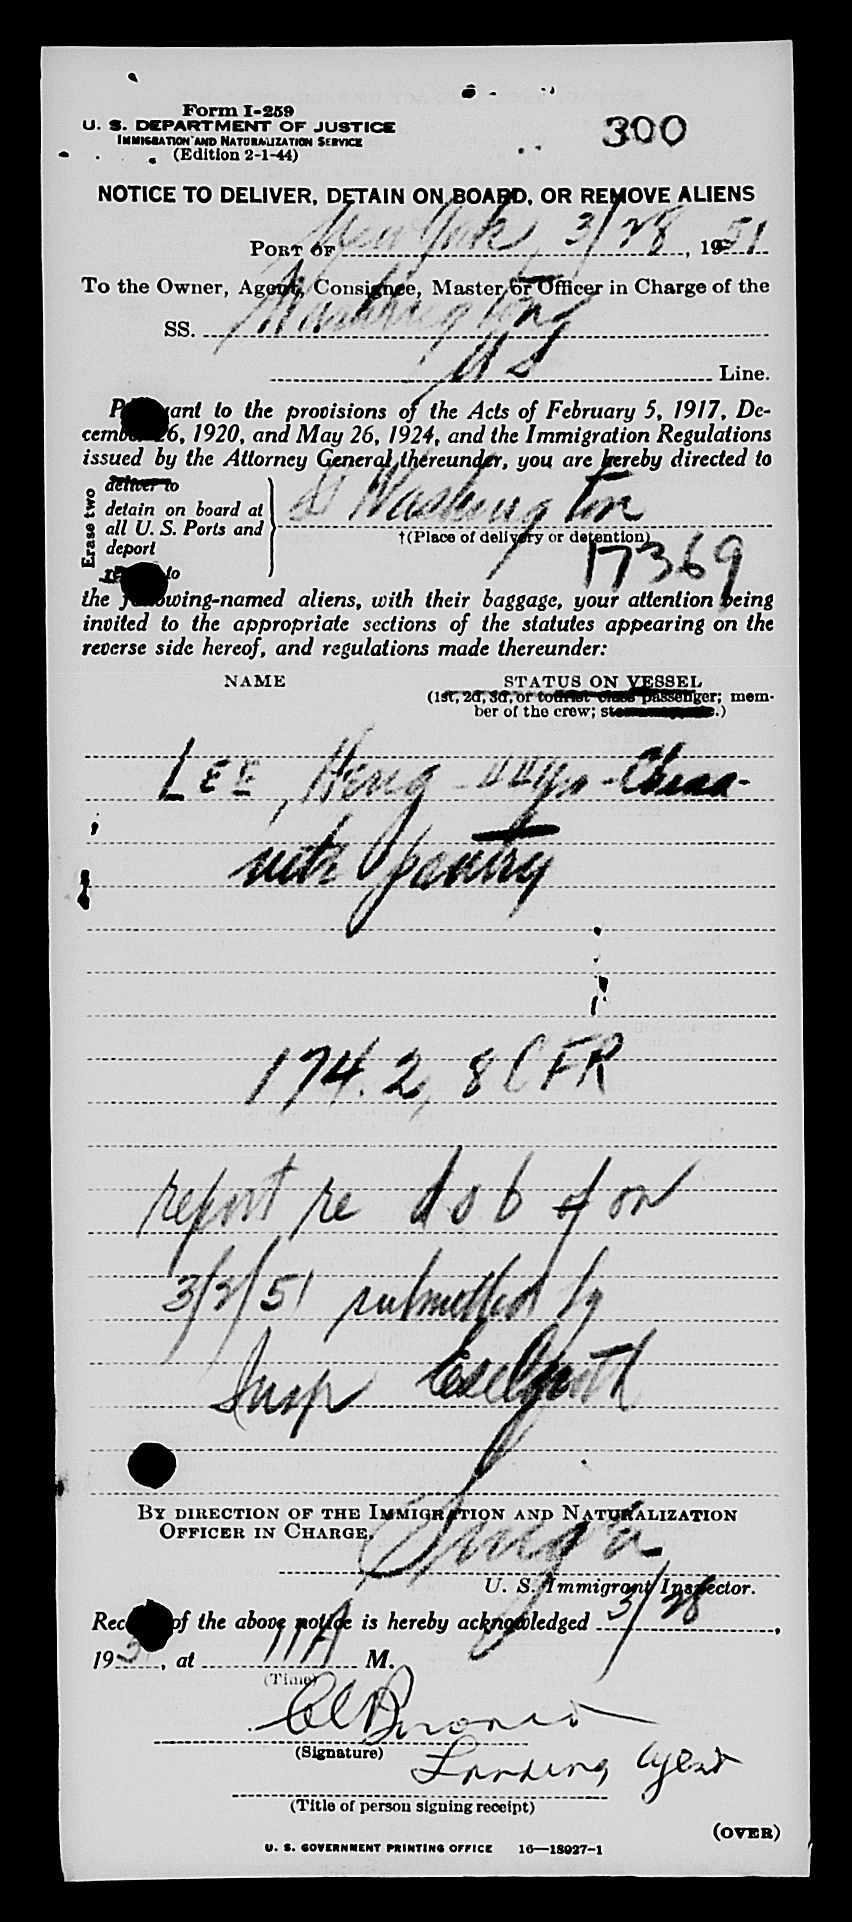 Form I-259
U. S. DEPARTMENT OF JUSTICE
IMMIGRATION AND NATURALIZATION SERVICE
(Edition 2-1-44)
300
NOTICE TO DELIVER, DETAIN ON BOARD, OR REMOVE ALIENS
PORT OF New York, 3/28, 1951
To the Owner, Agent, Consignee, Master, or Officer in Charge of the
SS. Washington
U S Line.
Pursuant to the provisions of the Acts of February 5, 1917, De-
cember 26, 1920, and May 26, 1924, and the Immigration Regulations
issued by the Attorney General thereunder, you are hereby directed to
Erase two
deliver to
detain on board at
all U. S. Ports and
deport
remove to
Washington
†(Place of delivery or detention)
17369
the following-named aliens, with their baggage, your attention being
invited to the appropriate sections of the statutes appearing on the
reverse side hereof, and regulations made thereunder:
NAME
STATUS ON VESSEL
(1st, 2d, 3d, or tourist class passenger; mem-
ber of the crew; stowaway, etc.)
LEE, Heng
174.2, 8 CFR
report re d o b of on
3/2/51 submitted by
Insp
BY DIRECTION OF THE IMMIGRATION AND NATURALIZATION
OFFICER IN CHARGE.
U. S. Immigrant Inspector.
Receipt of the above notice is hereby acknowledged 3/28,
195, at 11A M.
(Time)
(Signature)
Landing Agent
(Title of person signing receipt)
(OVER)
U. S. GOVERNMENT PRINTING OFFICE 16—18027-1